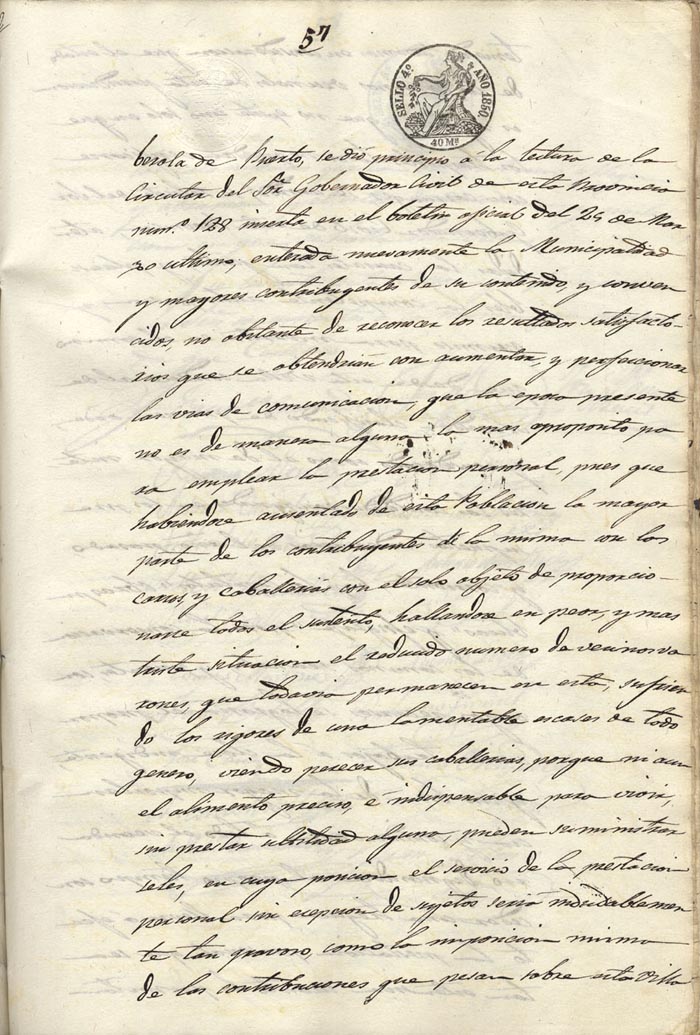 57
SELLO 4º AÑO 1850.
40 Ms
berola de Puerto, se dió principio á la lectura de la
Circular del Sor. Gobernador Civil de esta Provincia
num.º 128 inserta en el boletin oficial del 25 de Mar
zo ultimo; enterada nuevamente la Municipalidad
y mayores contribuyentes de su contenido, y conven
cidos, no obstante de reconocer los resultados satisfacto-
rios que se obtendrian con aumentar, y perfeccionar
las vias de comunicacion, que la epoca presente
no es de manera alguna la mas aproposito pa
ra emplear la prestacion personal, pues que
habiendose ausentado de esta Poblacion la mayor
parte de los contribuyentes de la misma con los
carros, y caballerias con el solo objeto de proporcio-
narse todos el sustento, hallandose en peor, y mas
triste situacion el reducido numero de vecinos va
rones, que todavia permanecen en esta, sufrien
do los rigores de una lamentable escases de todo
genero, viendo perecer sus caballerias, porque ni aun
el alimento preciso, é indispensable para vivir,
sin prestar utilidad alguna, pueden suministrar
seles, en cuya posicion el servicio de la prestacion
personal sin ecepcion de sujetos seria indudablemen
te tan gravoso, como la imposicion misma
de las contribuciones que pesan sobre esta Villa